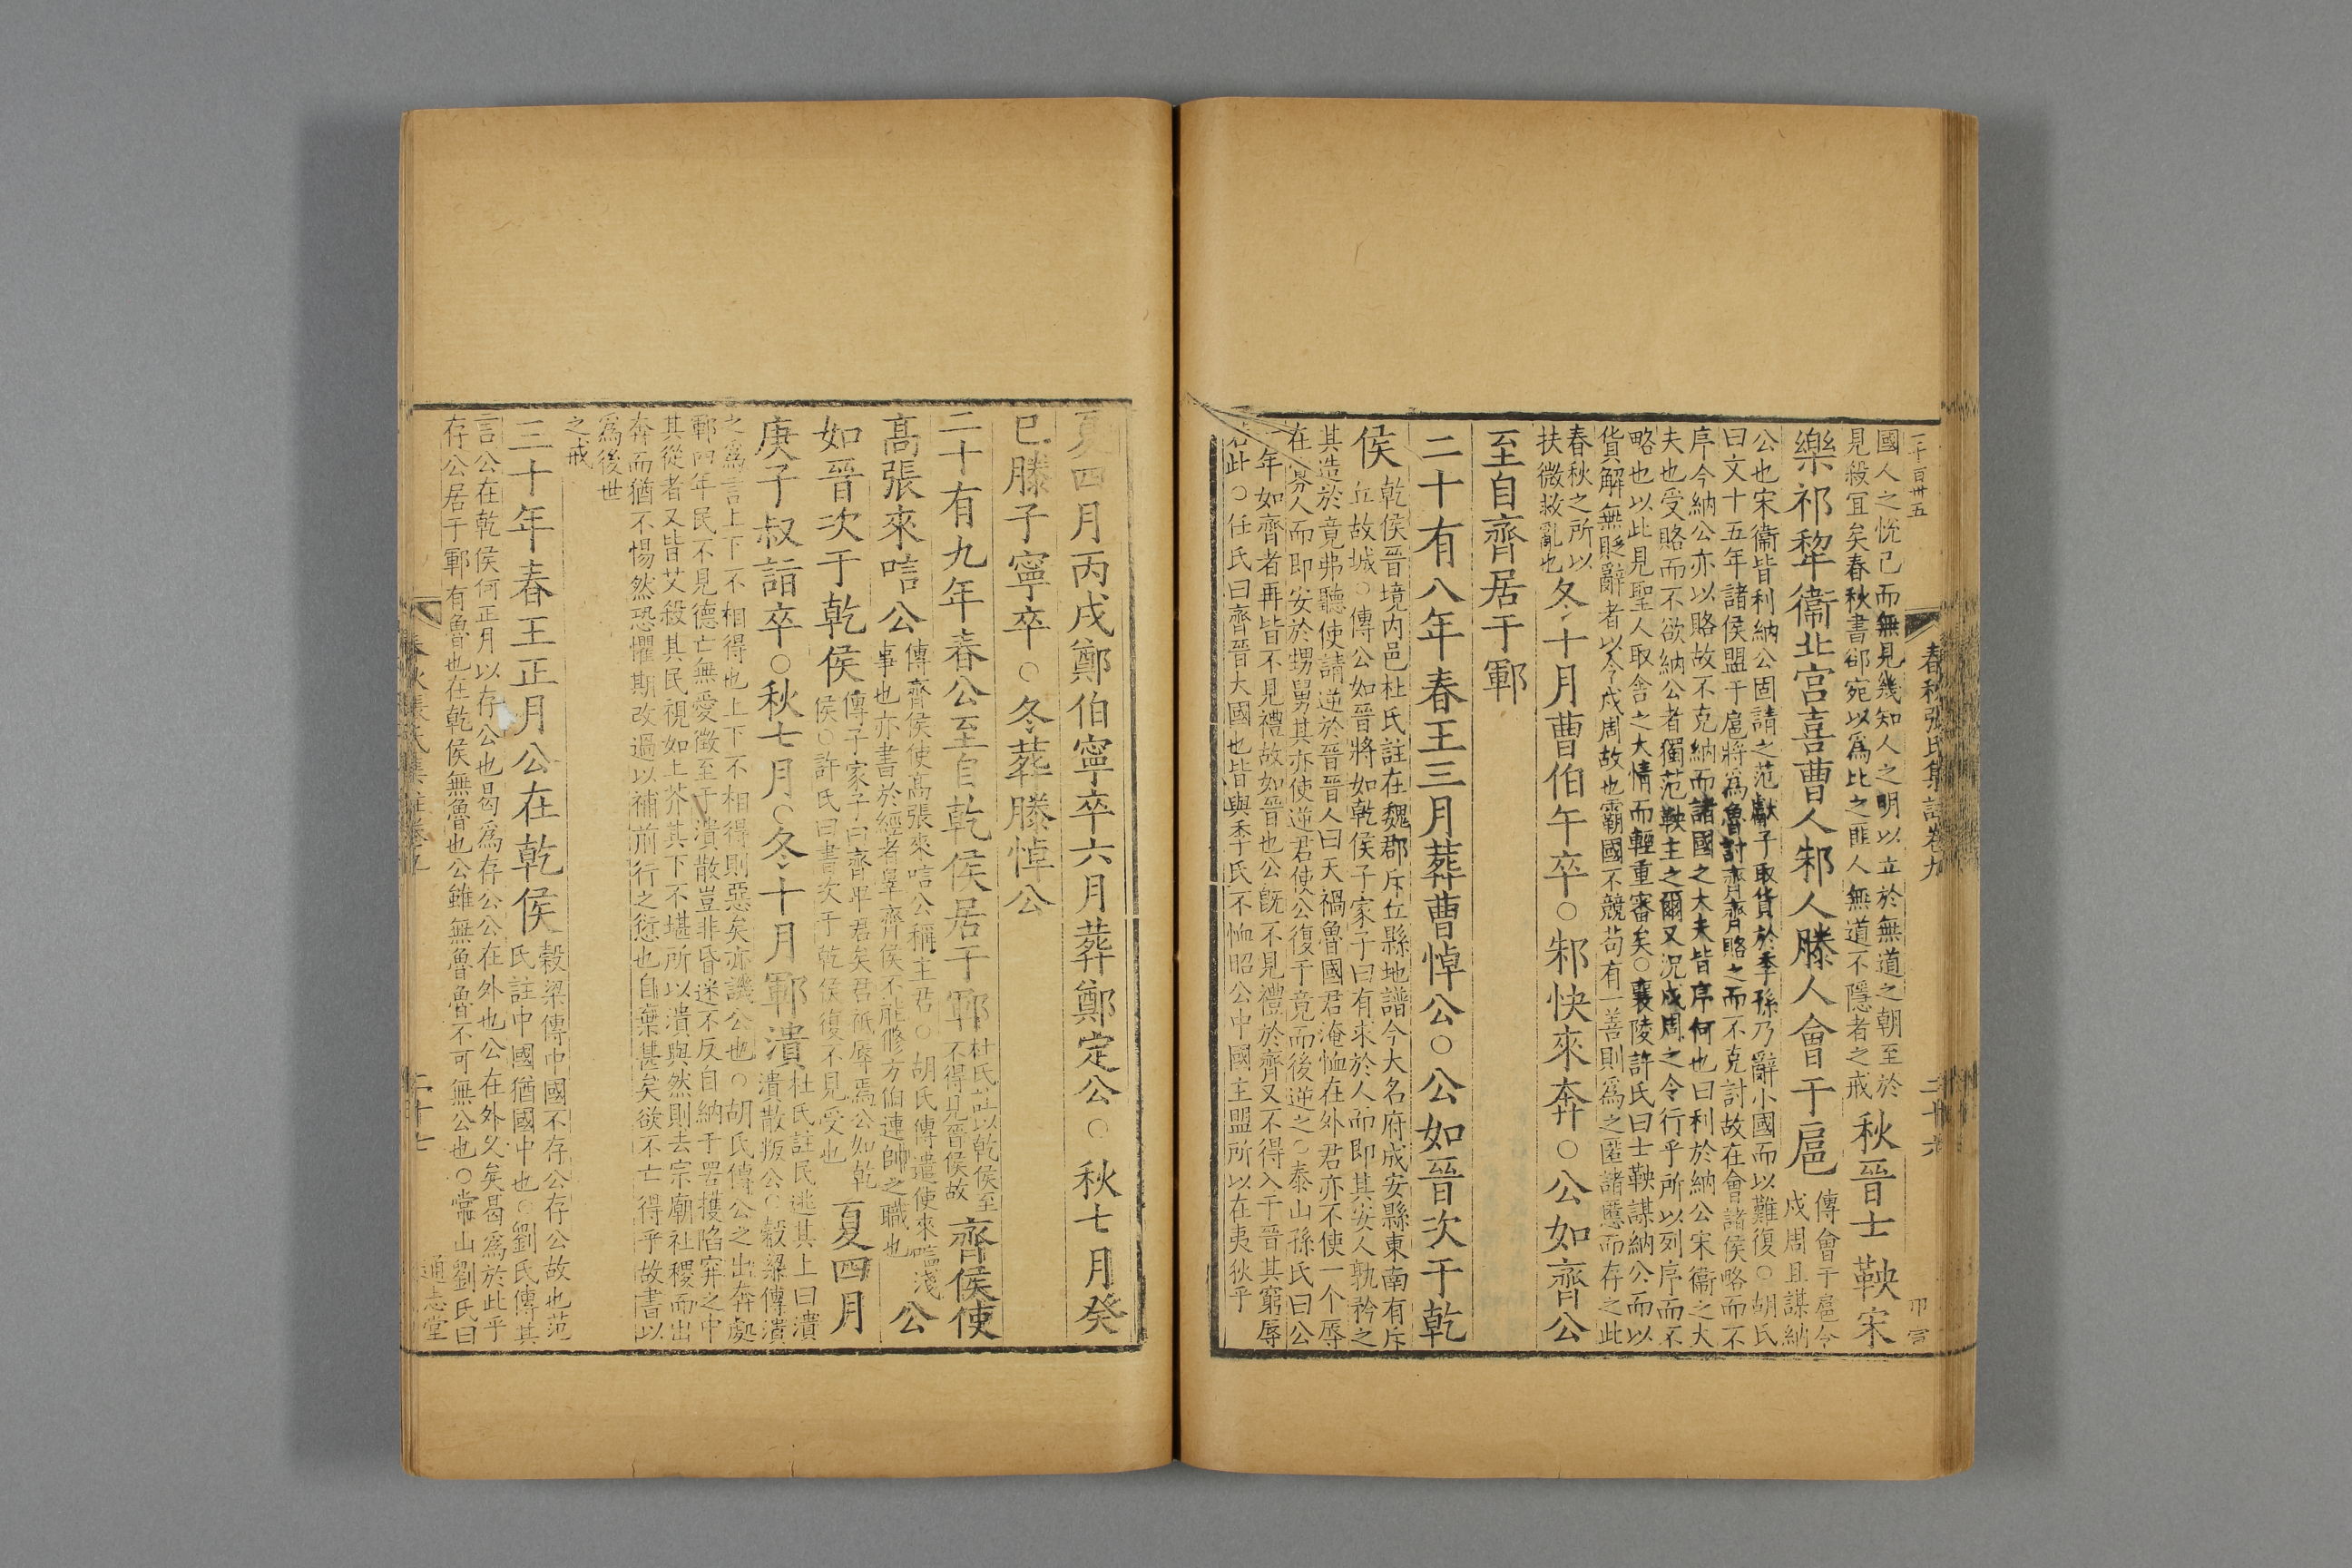 春秋張氏集註卷九
二十六
國人之悅己而無見幾知人之明以立於無道之朝至於
見殺宜矣春秋書郤宛以為比之匪人無道不隱者之戒
秋晉士鞅宋
樂祁犂衞北宮喜曹人邾人滕人會于扈
傳會于扈令
戍周且謀納
公也宋衞皆利納公固請之范獻子取貨於季孫乃辭小國而以難復○胡氏
曰文十五年諸侯盟于扈將為魯討齊齊賂之而不克討故在會諸侯略而不
序今納公亦以賂故不克納而諸國之大夫皆序何也曰利於納公宋衞之大
夫也受賂而不欲納公者獨范鞅主之爾又況成周之令行乎所以列序而不
略也以此見聖人取舍之大情而輕重審矣○襄陵許氏曰士鞅謀納公而以
貨解無貶辭者以令戍周故也霸國不競苟有一善則為之匿諸慝而存之此
春秋之所以
扶微救亂也
冬十月曹伯午卒○邾快來奔○公如齊公
至自齊居于鄆
二十有八年春王三月葬曹悼公○公如晉次于乾
侯
乾侯晉境內邑杜氏註在魏郡斥丘縣地譜今大名府成安縣東南有斥
丘故城○傳公如晉將如乾侯子家子曰有求於人而即其安人孰矜之
其造於竟弗聽使請逆於晉晉人曰天禍魯國君淹恤在外君亦不使一个辱
在寡人而即安於甥舅其亦使逆君使公復于竟而後逆之○泰山孫氏曰公
一年如齊者再皆不見禮故如晉也公既不見禮於齊又不得入于晉其窮辱
若此○任氏曰齊晉大國也皆與季氏不恤昭公中國主盟所以在夷狄乎
夏四月丙戌鄭伯寧卒六月葬鄭定公○秋七月癸
巳滕子寧卒○冬葬滕悼公
二十有九年春公至自乾侯居于鄆
杜氏註以乾侯至
不得見晉侯故
齊侯使
高張來唁公
傳齊侯使高張來唁公稱主君○胡氏傳遣使來唁淺
事也亦書於經者罪齊侯不能修方伯連帥之職也
公
如晉次于乾侯
傳子家子曰齊卑君矣君祇辱焉公如乾
侯○許氏曰書次于乾侯復不見受也
夏四月
庚子叔詣卒○秋七月○冬十月鄆潰
杜氏註民逃其上曰潰
潰散叛公○穀梁傳潰
之為言上下不相得也上下不相得則惡矣亦譏公也○胡氏傳公之出奔處
鄆四年民不見德亡無愛徵至于潰散豈非昏迷不反自納于罟擭陷穽之中
其從者又皆艾殺其民視如土芥其下不堪所以潰與然則去宗廟社稷而出
奔而猶不惕然恐懼期改過以補前行之愆也自棄甚矣欲不亡得乎故書以
為後世
之戒
三十年春王正月公在乾侯
穀梁傳中國不存公存公故也范
氏註中國猶國中也○劉氏傳其
言公在乾侯何正月以存公也曷為存公公在外也公在外久矣曷為於此乎
存公居于鄆有魯也在乾侯無魯也公雖無魯魯不可無公也○常山劉氏曰
二十七
通志堂